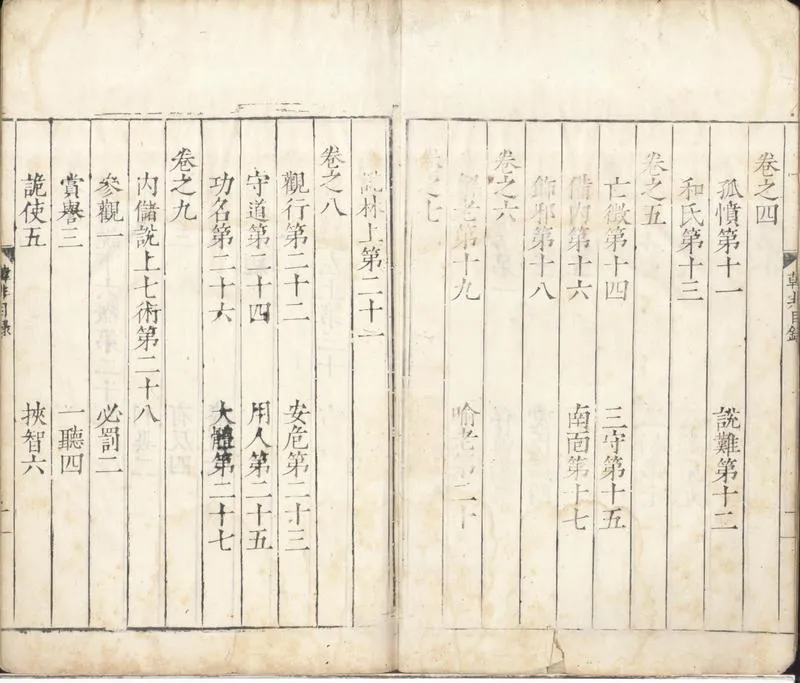 卷之四
孤憤第十一 說難第十二
和氏第十三
卷之五
亡徵第十四 三守第十五
備內第十六 南面第十七
飾邪第十八
卷之六
解老第十九 喻老第二十
卷之七
說林上第二十一
卷之八
觀行第二十二 安危第二十三
守道第二十四 用人第二十五
功名第二十六 大體第二十七
卷之九
內儲說上七術第二十八
參觀一 必罰二
賞譽三 一聽四
詭使五 挾智六
韓非目錄
韓非目錄